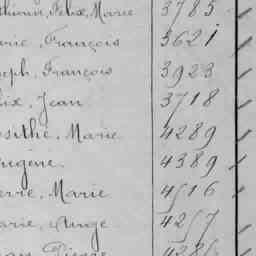 Félix, Marie 3785
arie, François 3621
seph, François 3923
lix, Jean 3718
osithe, Marie 4289
ugène. 4389
erre, Marie 4516
arie, Ange 4257
Pierre 4286